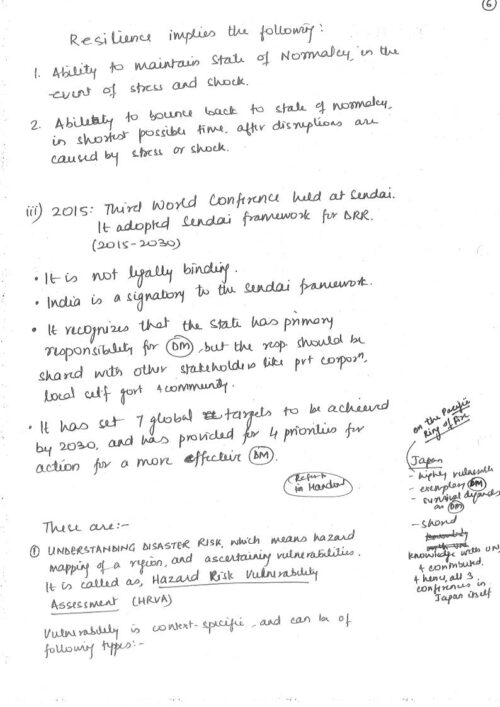 6
Resilience implies the following:
1. Ability to maintain State of Normalcy, in the
event of stress and shock.
2. Ability to bounce back to state of normalcy,
in shortest possible time, after disruptions are
caused by stress or shock.
iii) 2015: Third World Conference held at Sendai.
It adopted Sendai framework for DRR.
(2015-2030)
• It is not legally binding.
• India is a signatory to the Sendai framework.
• It recognizes that the State has primary
responsibility for DM, but the resp. should be
shared with other stakeholders like pvt corporn,
local self govt & community.
• It has set 7 global targets to be achieved
by 2030, and has provided for 4 priorities for
action for a more effective DM.
Refer
in Handout
These are:-
① UNDERSTANDING DISASTER RISK, which means hazard
mapping of a region, and ascertaining vulnerabilities.
It is called as, Hazard Risk Vulnerability
Assessment (HRVA)
Vulnerability is context-specific, and can be of
following types:-
on the Pacific
Ring of Fire
Japan
- highly vulnerable
- exemplary DM
- survival depends
on DM
- shared
knowledge with UN,
& contributed.
& hence, all 3
conferences in
Japan itself